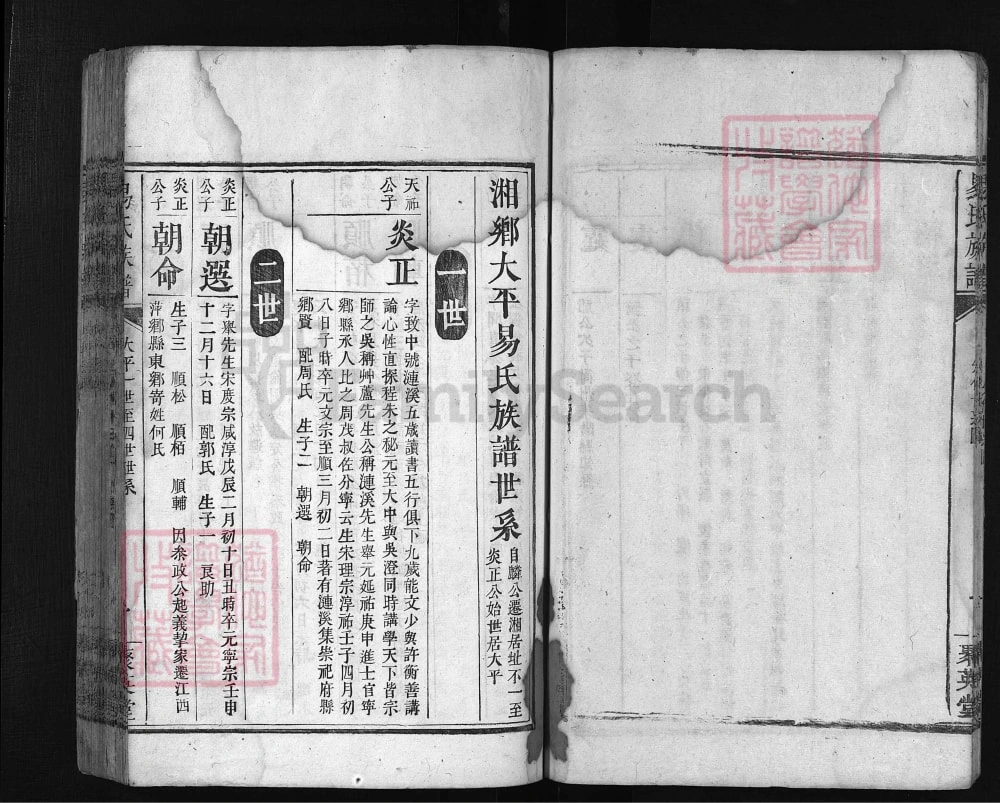 湘鄉大平易氏族譜世系
自麟公遷湘居址不一至
炎正公始世居大平
一世
天祐
公子
炎正
字致中號漣溪五歲讀書五行俱下九歲能文少與許衡善講
論心性直探程朱之秘元至大中與吳澄同時講學天下皆宗
師之吳稱艸蘆先生公稱漣溪先生舉元延祐庚申進士官寧
鄉縣丞人比之周茂叔佐分寧云生宋理宗淳祐壬子四月初
八日子時卒元文宗至順三月初二日著有漣溪集崇祀府縣
鄉賢 配周氏 生子二 朝選 朝命
二世
炎正
公子
朝選
字舉先生宋度宗咸淳戊辰二月初十日丑時卒元寧宗壬申
十二月十六日 配郭氏 生子一 艮助
炎正
公子
朝命
生子三 順松 順栢 順輔 因叅政公起義挈家遷江西
萍鄉縣東鄉寄姓何氏
易氏族譜
大平一世至四世世系
聚英堂
易氏族譜
聚英堂
FamilySearch